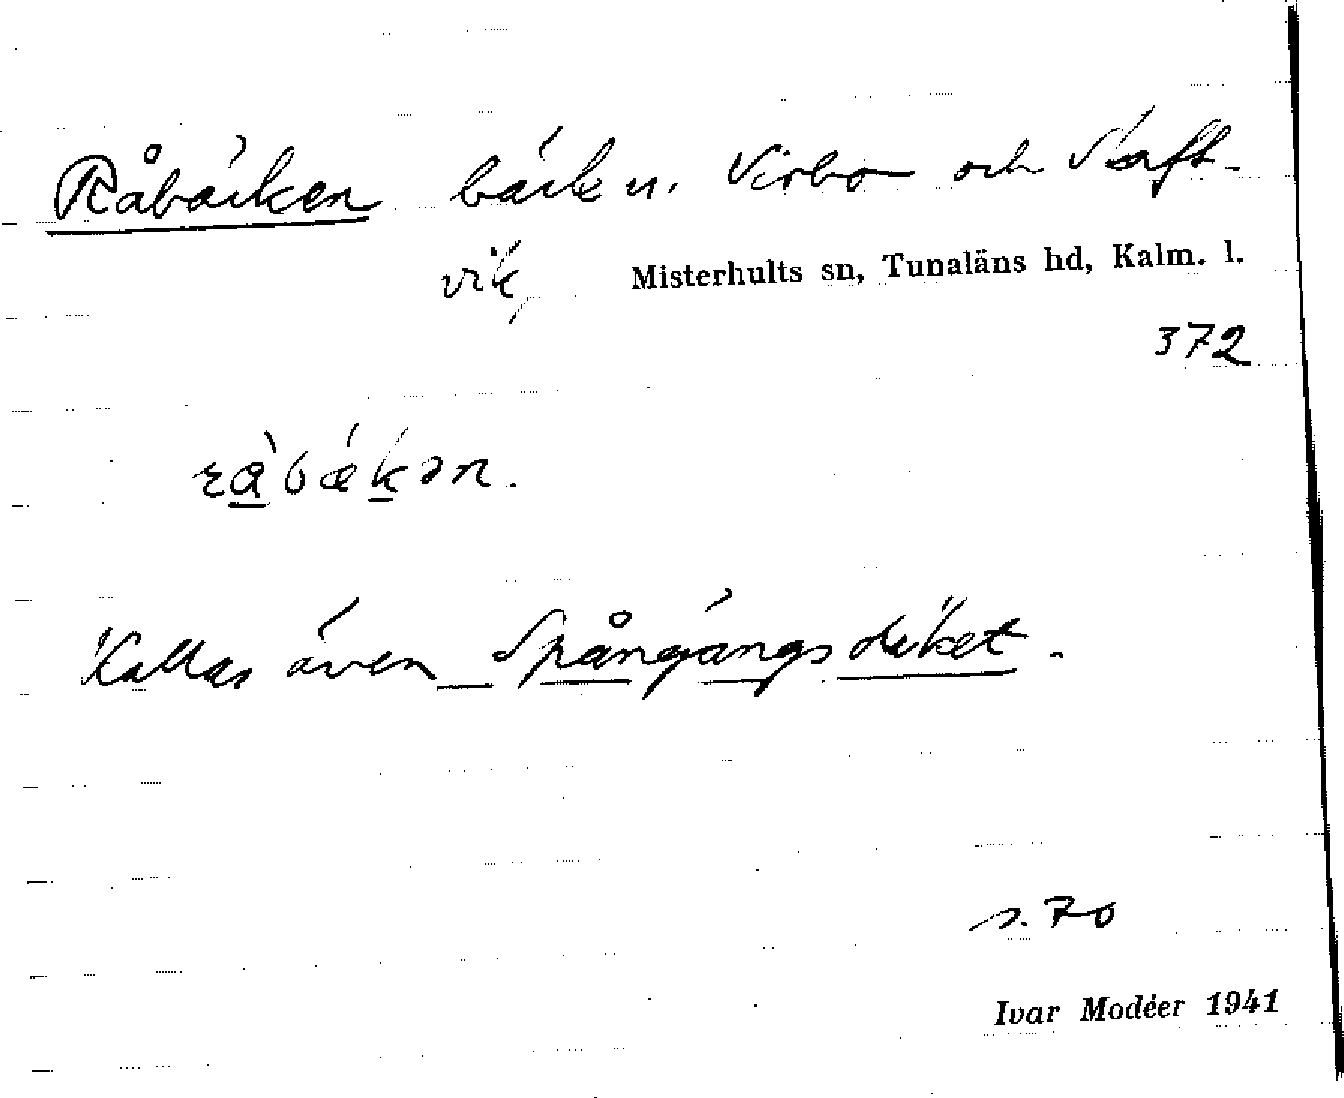 Råbäcken bäck n. Virbo och Kraft-
vik,
Misterhults sn, Tunaläns hd, Kalm. l.
372
ràbækən.
Kallas även Spångångsdiket.
s. 70
Ivar Modéer 1941